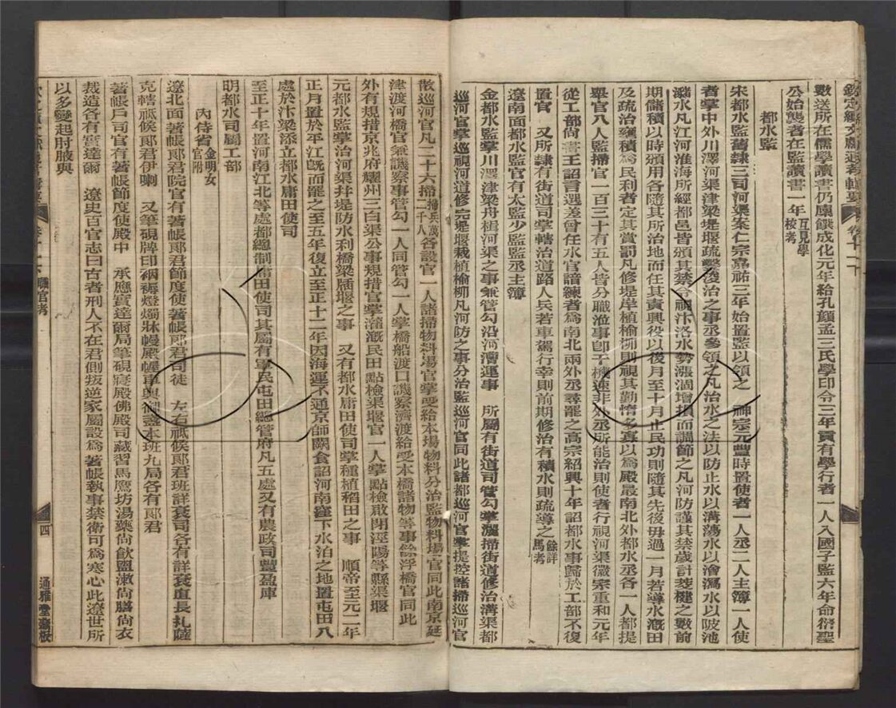 欽定續文獻通考輯要　卷十六下
數送所在儒學讀書仍廩餼成化元年給孔顏孟三氏學印令三年貢有學行者一人入國子監六年命衍聖
公始襲者在監讀書一年互見學校考
都水監
宋都水監舊隸三司河渠案仁宗嘉祐三年始置監以領之　神宗元豐時置使者一人丞二人主簿一人使
者掌中外川澤河渠津梁堤堰疏鑿浚治之事丞參領之凡治水之法以防止水以溝蕩水以澮瀉水以陂池
瀦水凡江河淮海所經郡邑皆頒其禁令視汴洛水勢漲涸增損而調節之凡河防謹其禁歲計茭楗之數前
期儲積以時頒用各隨其所治地而任其責興役以後月至十月止民功則隨其先後毋過一月若導水溉田
及疏治壅積為民利者定其賞罰凡修堤岸植榆柳則視其勤惰多寡以為殿最南北外都水丞各一人都提
舉官八人監埽官一百三十有五人皆分職涖事卽干機速非外丞所能治則使者行視河渠徽宗重和元年
從工部尚書王詔言選差曾任水官諳練者為南北兩外丞尋罷之高宗紹興十年詔都水事歸於工部不復
置官　又所隸有街道司掌轄治道路人民若車駕行幸則前期修治有積水則疏導之餘詳馬考
遼南面都水監官有太監少監監丞主簿
金都水監掌川澤津梁舟楫河渠之事兼管勾沿河漕運事　所屬有街道司管勾掌灑掃街道修治溝渠都
巡河官掌巡視河道修完堤堰栽植榆柳凡河防之事分治監巡河官同此諸都巡河官掌提控諸埽巡河官
散巡河官凡二十六埽埽兵萬二千人各設官一人諸埽物料場官掌受給本場物料分治監物料場官同此南京延
津渡河橋官兼譏察事管勾一人同管勾一人掌橋船渡口譏察濟渡給受本橋諸物等事餘浮橋官同此
外有規措京兆府耀州三白渠公事規措官掌灌溉民田點檢渠堰官一人掌點檢啟閉涇陽等縣渠堰
元都水監掌治河渠并堤防水利橋梁牐堰之事　又有都水庸田使司掌種植稻田之事　順帝至元二年
正月置於平江旣而罷之至五年復立至正十二年因海運不通京師闕食詔河南窪下水泊之地置屯田八
處於汴梁添立都水庸田使司
至正十年置河南江北等處都總制庸田使司其屬有軍民屯田總管府凡五處又有農政司豐盈庫
明都水司屬工部
內侍省金明女官附
遼北面著帳郎君院官有著帳郎君節度使著帳郎君司徒　左右祗候郎君班詳袞司各有詳袞直長扎薩
克轄祗候郎君伊喇　又筆硯牌印裀褥燈燭牀幔殿幄車輿御盞本班九局各有郎君
著帳戶司官有著帳節度使殿中　承應寶達爾局筆硯寢殿佛殿司藏習馬鷹坊湯藥尚飲盥漱尚膳尚衣
裁造各有寶達爾　遼史百官志曰古者刑人不在君側叛逆家屬設為著帳執事禁衛可為寒心此遼世所
以多變起肘腋與
職官考　四　通雅堂藏板